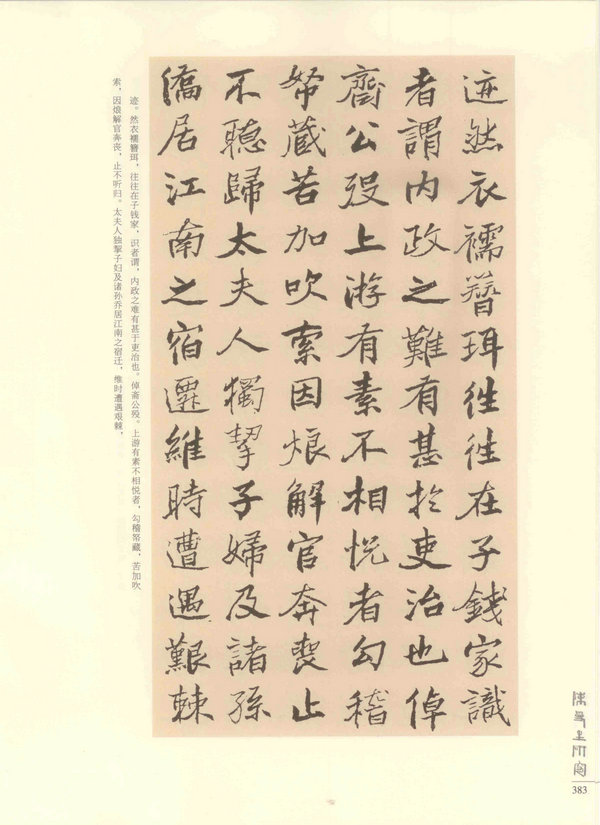 迹然衣襦簪珥徃徃在子錢家識
者謂内政之難有甚於吏治也倬
齋公歿上游有素不相悅者勾稽
帑藏苦加吹索因烺解官奔喪止
不聽歸太夫人獨挈子婦及諸孫
僑居江南之宿遷維時遭遇艱棘
迹。然衣襦簪珥，往往在子钱家，识者谓，内政之难有甚于吏治也。倬斋公殁。上游有素不相悦者，勾稽帑藏，苦加吹
索，因烺解官奔丧，止不听归。太夫人独挈子妇及诸孙乔居江南之宿迁，维时遭遇艰棘，
383